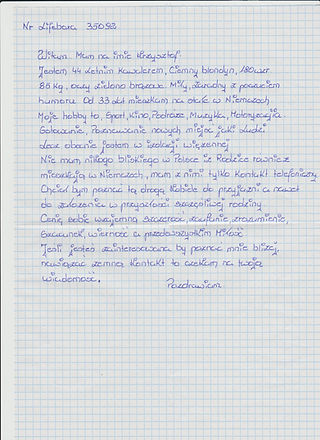 Nr Lifebora 35093
Witam. Mam na imię Krzysztof
Jestem 44 letnim kawalerem, Ciemny blondyn, 180 wzr
86 kg, oczy zielono brązowe. Miły, zaradny z poczuciem
humoru. Od 33 lat mieszkam na stałe w Niemczech
Moje hobby to, Sport, Kino, Podróże, Muzyka, Motoryzacja.
Gotowanie, Poznawanie nowych miejsc jak i Ludzi
Lecz obecnie jestem w izolacji więziennej
Nie mam nikogo bliskiego w Polsce iż Rodzice również
mieszkają w Niemczech, mam z nimi tylko Kontakt telefoniczny
Chciał bym poznać tą drogą Kobietę do przyjaźni a nawet
do założenia w przyszłości szczęśliwej rodziny.
Cenię sobie wzajemną szczerość, zaufanie, zrozumienie,
Szacunek, wierność a przedewszystkim Miłość
Jeśli jesteś zainteresowana by poznać mnie bliżej,
nawiązać zemną Kontakt to czekam na twoją
wiadomość.
Pozdrawiam